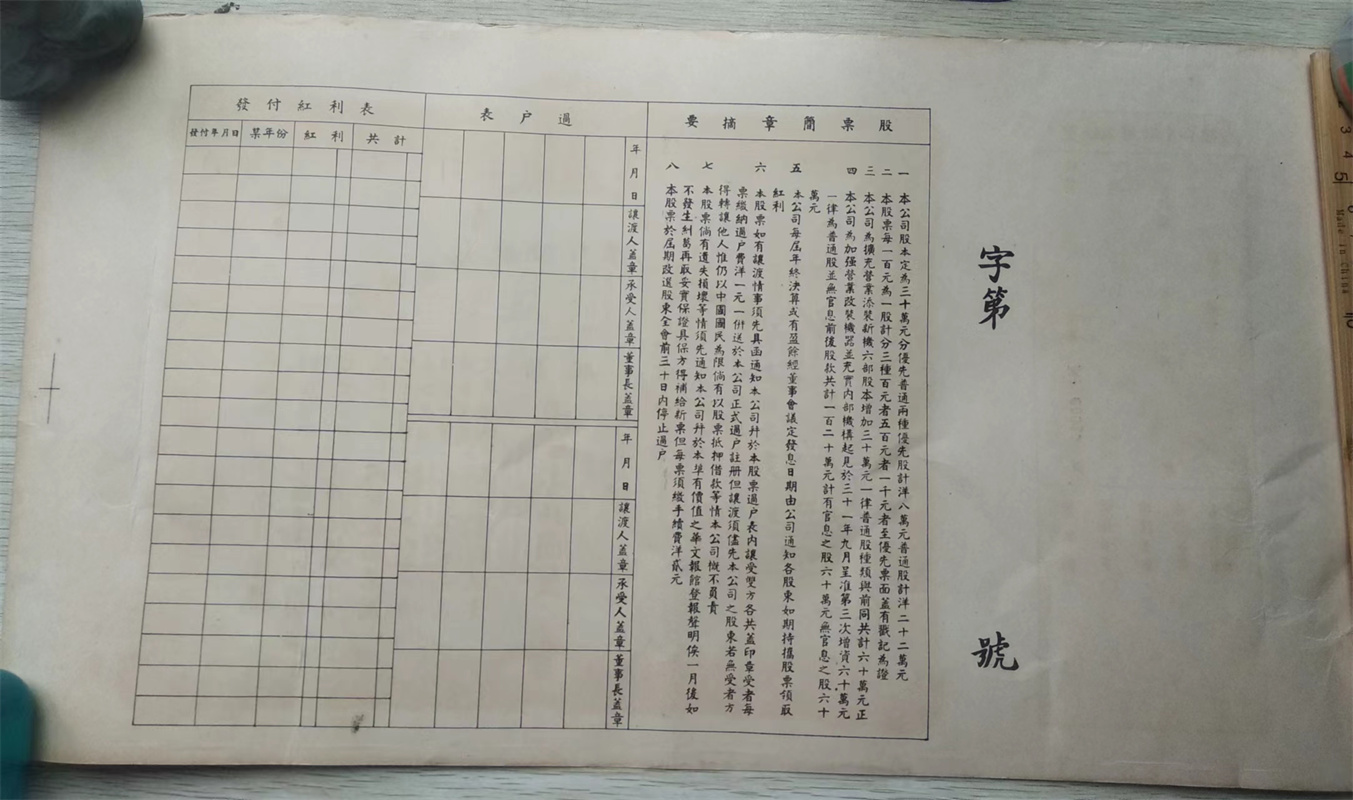 字第
號
股票簡章摘要
一 本公司股本定為三十萬元分優先普通兩種優先股計洋八萬元普通股計洋二十二萬元
二 本股票每一百元為一股計分三種百元者五百元者一千元者至優先票面蓋有戳記為證
三 本公司為擴充營業添裝新機六部股本增加三十萬元一律普通股種類與前同共計六十萬元正
四 本公司為加强營業改裝機器並充實內部機構起見於三十一年九月呈准第三次增資六十萬元
一律為普通股並無官息前後股款共計一百二十萬元計有官息之股六十萬元無官息之股六十
萬元
五 本公司每屆年終決算或有盈餘經董事會議定發息日期由公司通知各股東如期持攜股票領取
紅利
六 本股票如有讓渡情事須先具函通知本公司幷於本股票過戶表內讓受雙方各共蓋印章受者每
票繳納過戶費洋一元一併送於本公司正式過戶註册但讓渡須儘先本公司之股東若無受者方
得轉讓他人惟仍以中國國民為限倘有以股票抵押借款等情本公司概不負責
七 本股票倘有遺失損壞等情須先通知本公司幷於本埠有價值之華文報館登報聲明俟一月後如
不發生糾葛再取妥實保證具保方得補給新票但每票須繳手續費洋貳元
八 本股票於屆期改選股東全會前三十日內停止過戶
過戶表
年月日
讓渡人蓋章
承受人蓋章
董事長蓋章
年月日
讓渡人蓋章
承受人蓋章
董事長蓋章
發付紅利表
發付年月日 某年份 紅利 共計
3
4
5
6
10
Made in china